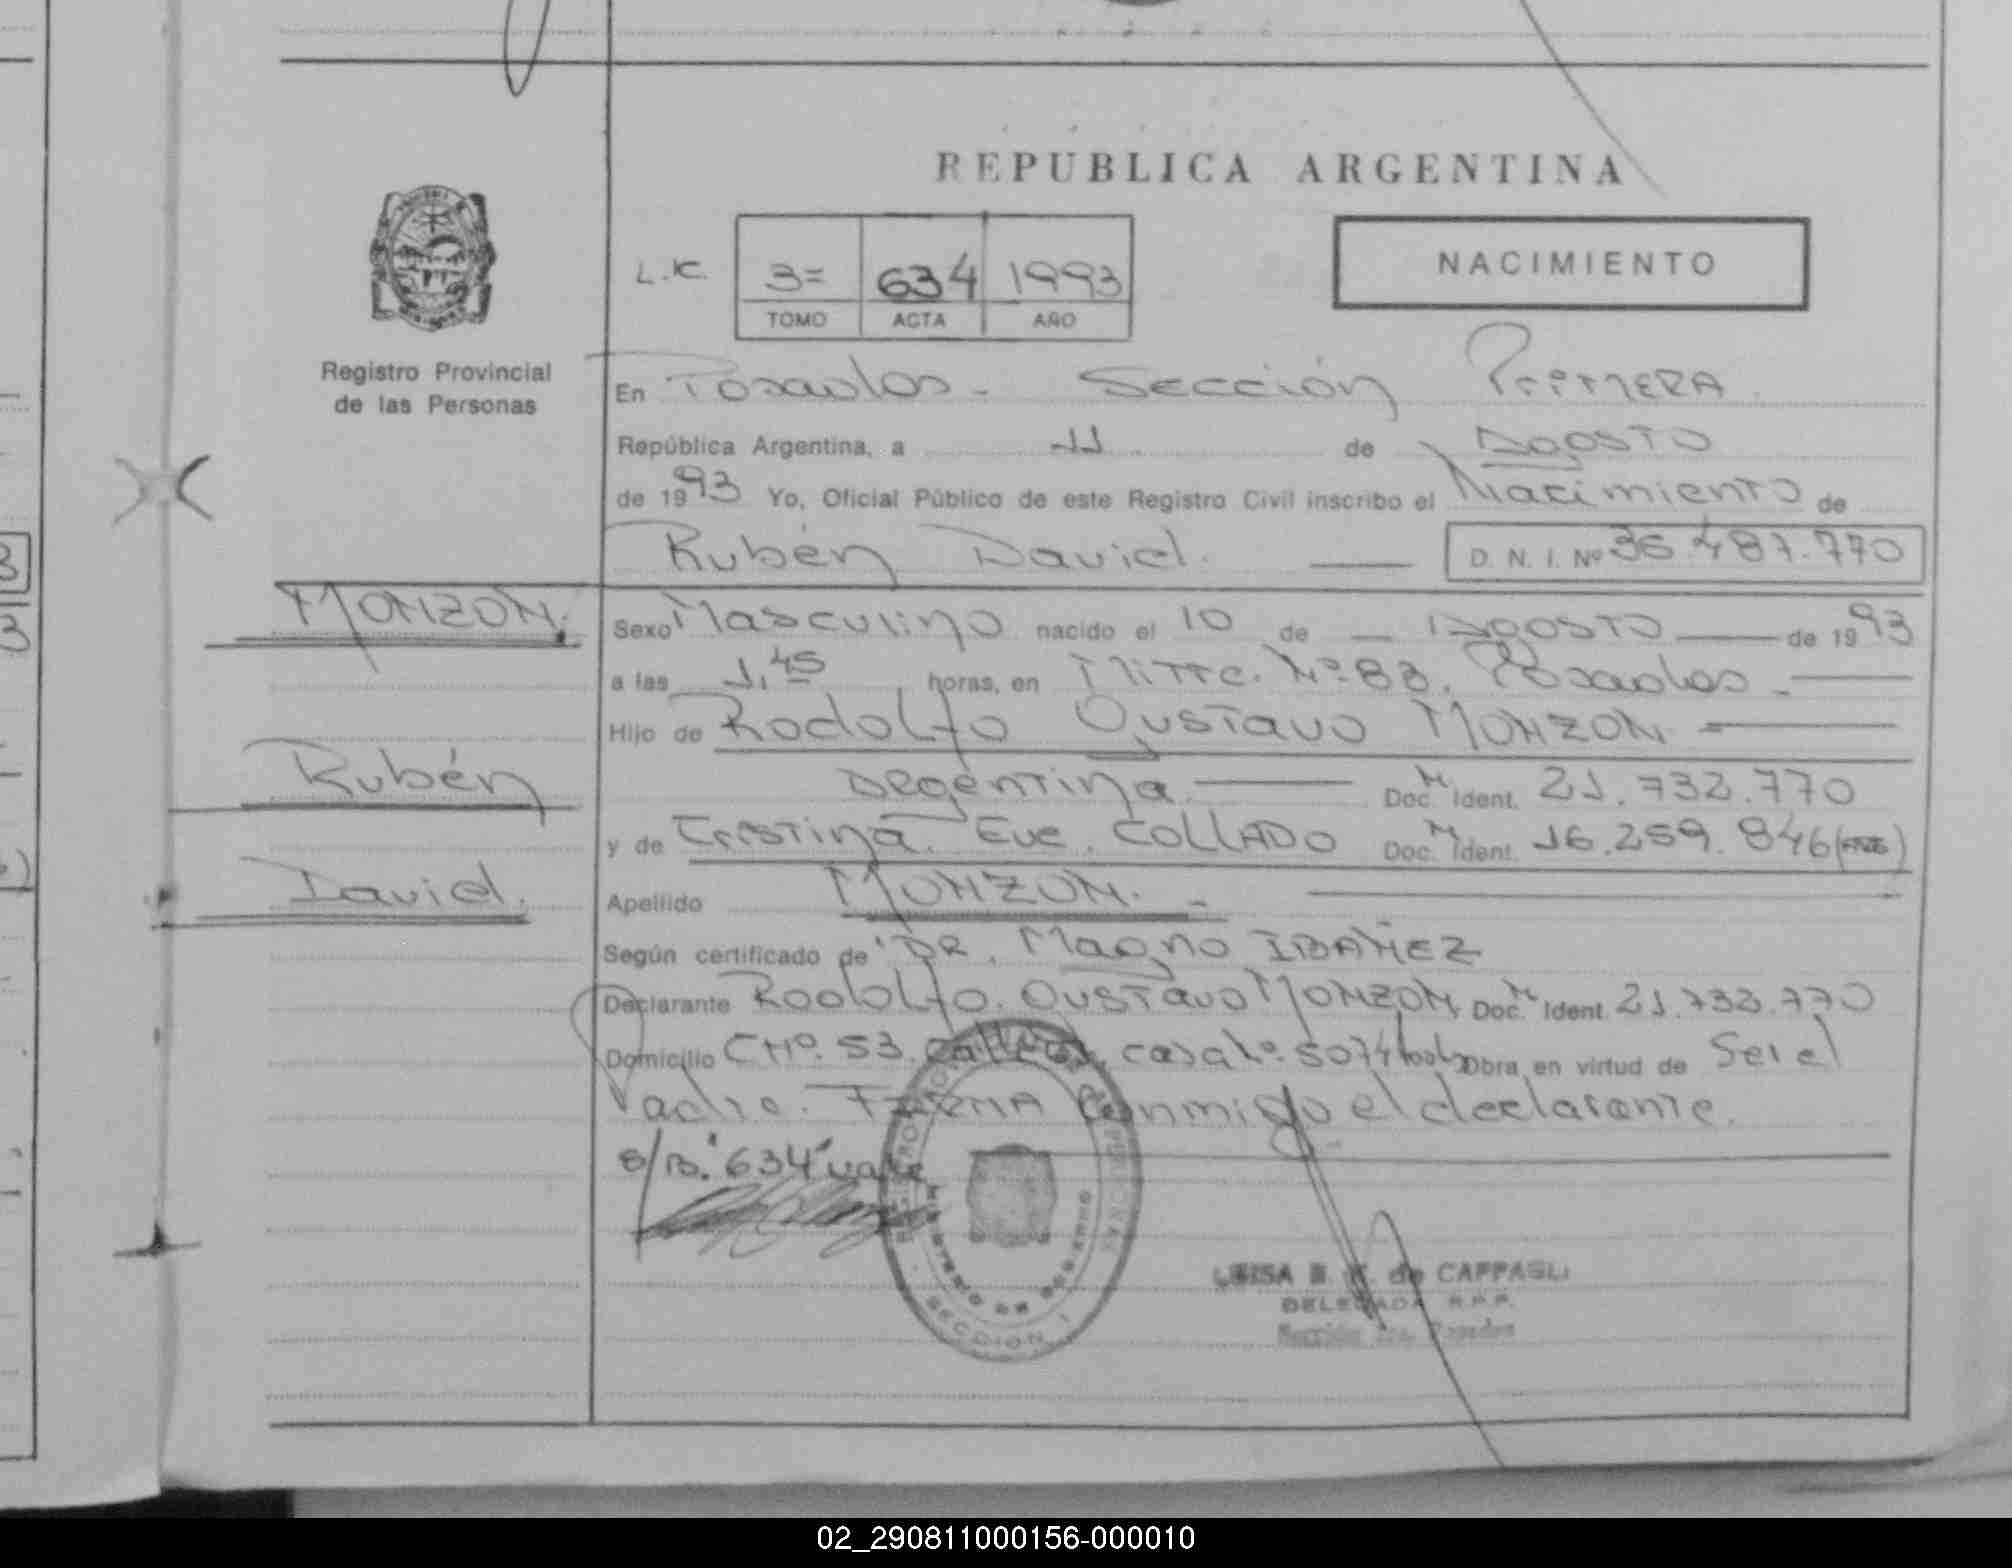 REPUBLICA ARGENTINA
L.K. 3= 634 1993
TOMO ACTA AÑO
NACIMIENTO
Registro Provincial
de las Personas
En Posadas - Sección Primera
República Argentina, a 11 de Agosto
de 1993 Yo, Oficial Público de este Registro Civil inscribo el Nacimiento de
Rubén David. D. N. I. Nº 36.487.770
MONZON.
Sexo Masculino nacido el 10 de Agosto de 1993
a las 1,45 horas, en Mitre. Nº 83. Posadas -
Hijo de Rodolfo Gustavo MONZON
Rubén
Argentina. Doc. M Ident. 21.732.770
y de Cristina. Eve. COLLADO Doc. M Ident. 16.259.846
David.
Apellido MONZON. -
Según certificado de DR. Magno IBAÑEZ
Declarante Rodolfo. Gustavo MONZON Doc. M Ident. 21.732.770
Domicilio CHº. 53. casa Nº. 5074 Obra en virtud de Ser el
Padre. FIRMA Conmigo el declarante.
S/B. "634" vale
REGISTRO PROVINCIAL DE LAS PERSONAS
MINISTERIO DE GOBIERNO
SECCION 1
LUISA de CAPPAGLI
DELEGADA R.P.P.
Sección 1ra. Posadas
02_290811000156-000010